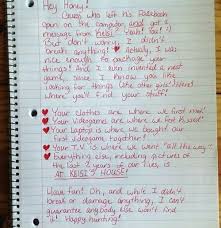 Hey Honey!
Guess who left his Facebook
open on the computer and got a
message from KEISI! Yeah! Fool!
But don't worry, I didn't
break anything! Actually, I was
nice enough to package your
things! And I even invented a neat
game, since I know you like
looking for things (like other girls' sisters)
where you'll find your stuff!
♥ Your clothes are where we first met!
♥ Your videogames are where we first kissed!
♥ Your laptop is where we bought our
first videogame together!
♥ Your T.V. is where we went "all the way"!
♥ Everything else, including pictures of
the last 2 years of our lives, is
AT KEISI'S HOUSE!
Have fun! Oh, and while I didn't
break or damage anything, I can't
guarantee anybody else won't find
it! Happy hunting!